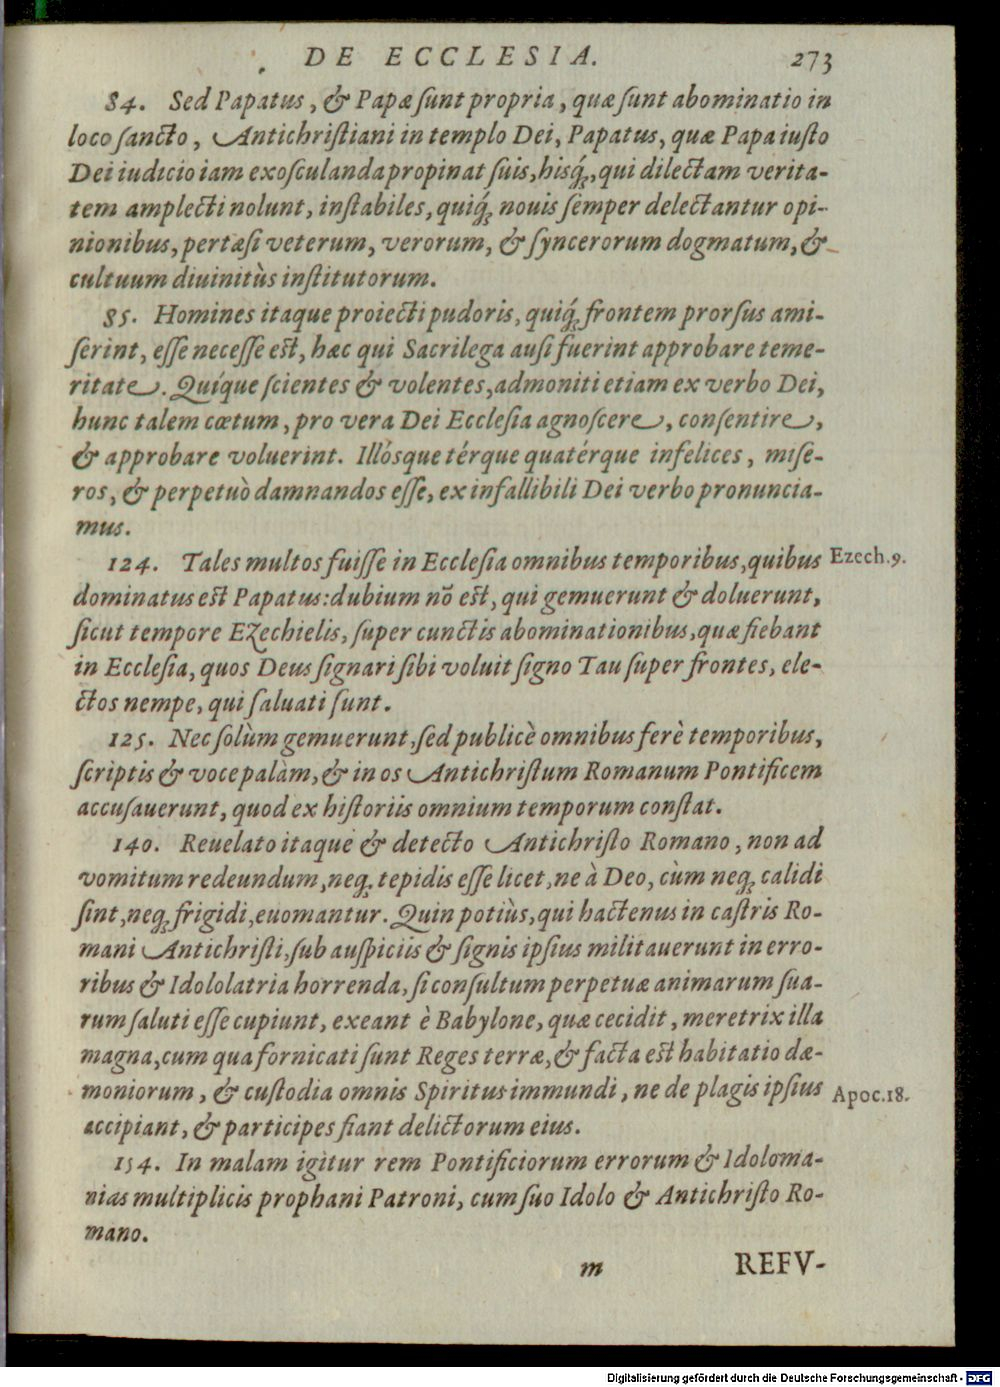 DE ECCLESIA. 273
84. Sed Papatus, & Papæ ſunt propria, quæ ſunt abominatio in
loco ſancto, Antichriſtiani in templo Dei, Papatus, quæ Papa iuſto
Dei iudicio iam exoſculanda propinat ſuis, hisq́;, qui dilectam verita-
tem amplecti nolunt, inſtabiles, quiq́; nouis ſemper delectantur opi-
nionibus, pertæſi veterum, verorum, & ſyncerorum dogmatum, &
cultuum diuinitùs inſtitutorum.
85. Homines itaque proiecti pudoris, quiq́; frontem prorſus ami-
ſerint, eſſe neceſſe eſt, hæc qui Sacrilega auſi fuerint approbare teme-
ritate. Quíque ſcientes & volentes, admoniti etiam ex verbo Dei,
hunc talem cœtum, pro vera Dei Eccleſia agnoſcere, conſentire,
& approbare voluerint. Illósque térque quatérque infelices, miſe-
ros, & perpetuò damnandos eſſe, ex infallibili Dei verbo pronuncia-
mus.
124. Tales multos fuiſſe in Eccleſia omnibus temporibus, quibus Ezech.9.
dominatus eſt Papatus: dubium nõ eſt, qui gemuerunt & doluerunt,
ſicut tempore Ezechielis, ſuper cunctis abominationibus, quæ fiebant
in Eccleſia, quos Deus ſignari ſibi voluit ſigno Tau ſuper frontes, ele-
ctos nempe, qui ſaluati ſunt.
125. Nec ſolùm gemuerunt, ſed publicè omnibus ferè temporibus,
ſcriptis & voce palàm, & in os Antichriſtum Romanum Pontificem
accuſauerunt, quod ex hiſtoriis omnium temporum conſtat.
140. Reuelato itaque & detecto Antichriſto Romano, non ad
vomitum redeundum, neq; tepidis eſſe licet, ne à Deo, cùm neq; calidi
ſint, neq; frigidi, euomantur. Quin potiùs, qui hactenus in caſtris Ro-
mani Antichriſti, ſub auſpiciis & ſignis ipſius militauerunt in erro-
ribus & Idololatria horrenda, ſi conſultum perpetuæ animarum ſua-
rum ſaluti eſſe cupiunt, exeant è Babylone, quæ cecidit, meretrix illa
magna, cum qua fornicati ſunt Reges terræ, & facta eſt habitatio dæ-
moniorum, & cuſtodia omnis Spiritus immundi, ne de plagis ipſius Apoc.18.
accipiant, & participes fiant delictorum eius.
154. In malam igitur rem Pontificiorum errorum & Idoloma-
nias multiplicis prophani Patroni, cum ſuo Idolo & Antichriſto Ro-
mano.
m REFV-
Digitalisierung gefördert durch die Deutsche Forschungsgemeinschaft - DFG